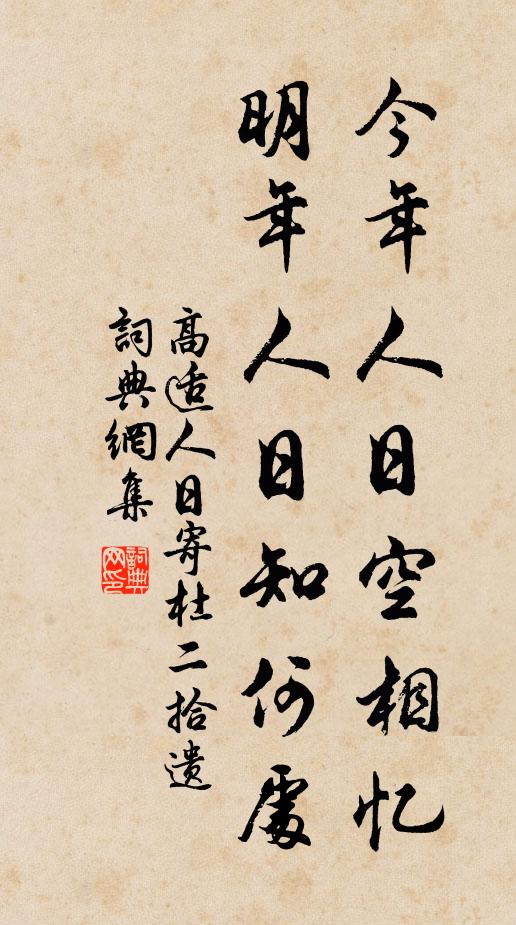 今年人日空相忆
明年人日知何處
高适人日寄杜二拾遗
詞典網集
詞典网印